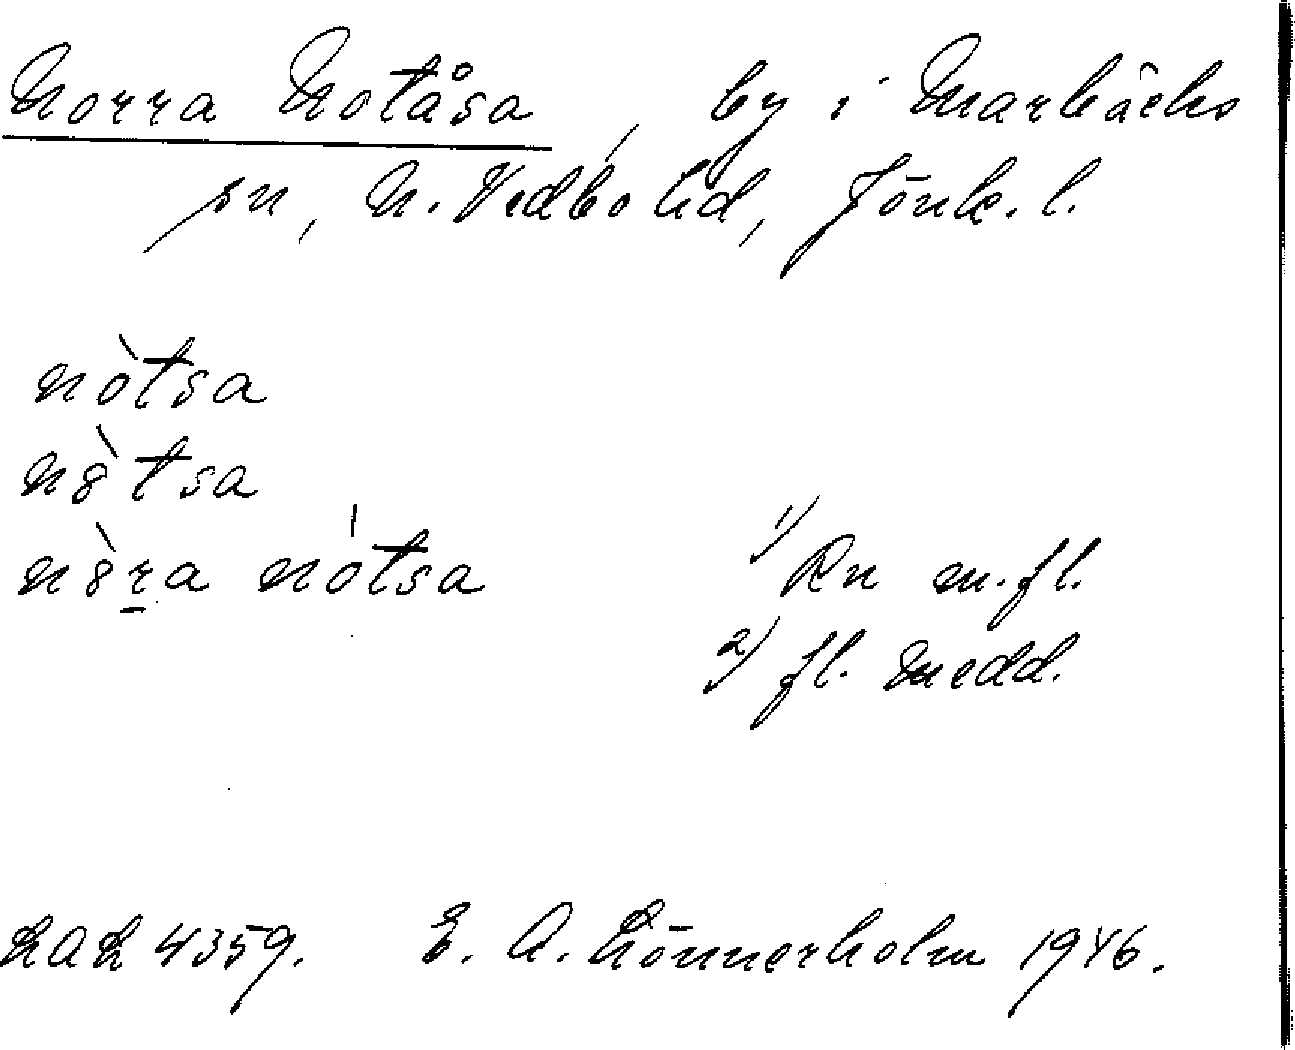 Norra Notåsa, by i Marbäcks
sn, N. Vedbo hd, Jönk. l.
nòtsa
n8̀tsa
n8̀r̲a nòtsa
1) Rn m.fl.
2) fl. medd.
LAL 4359. E. A. Lönnerholm 1946.